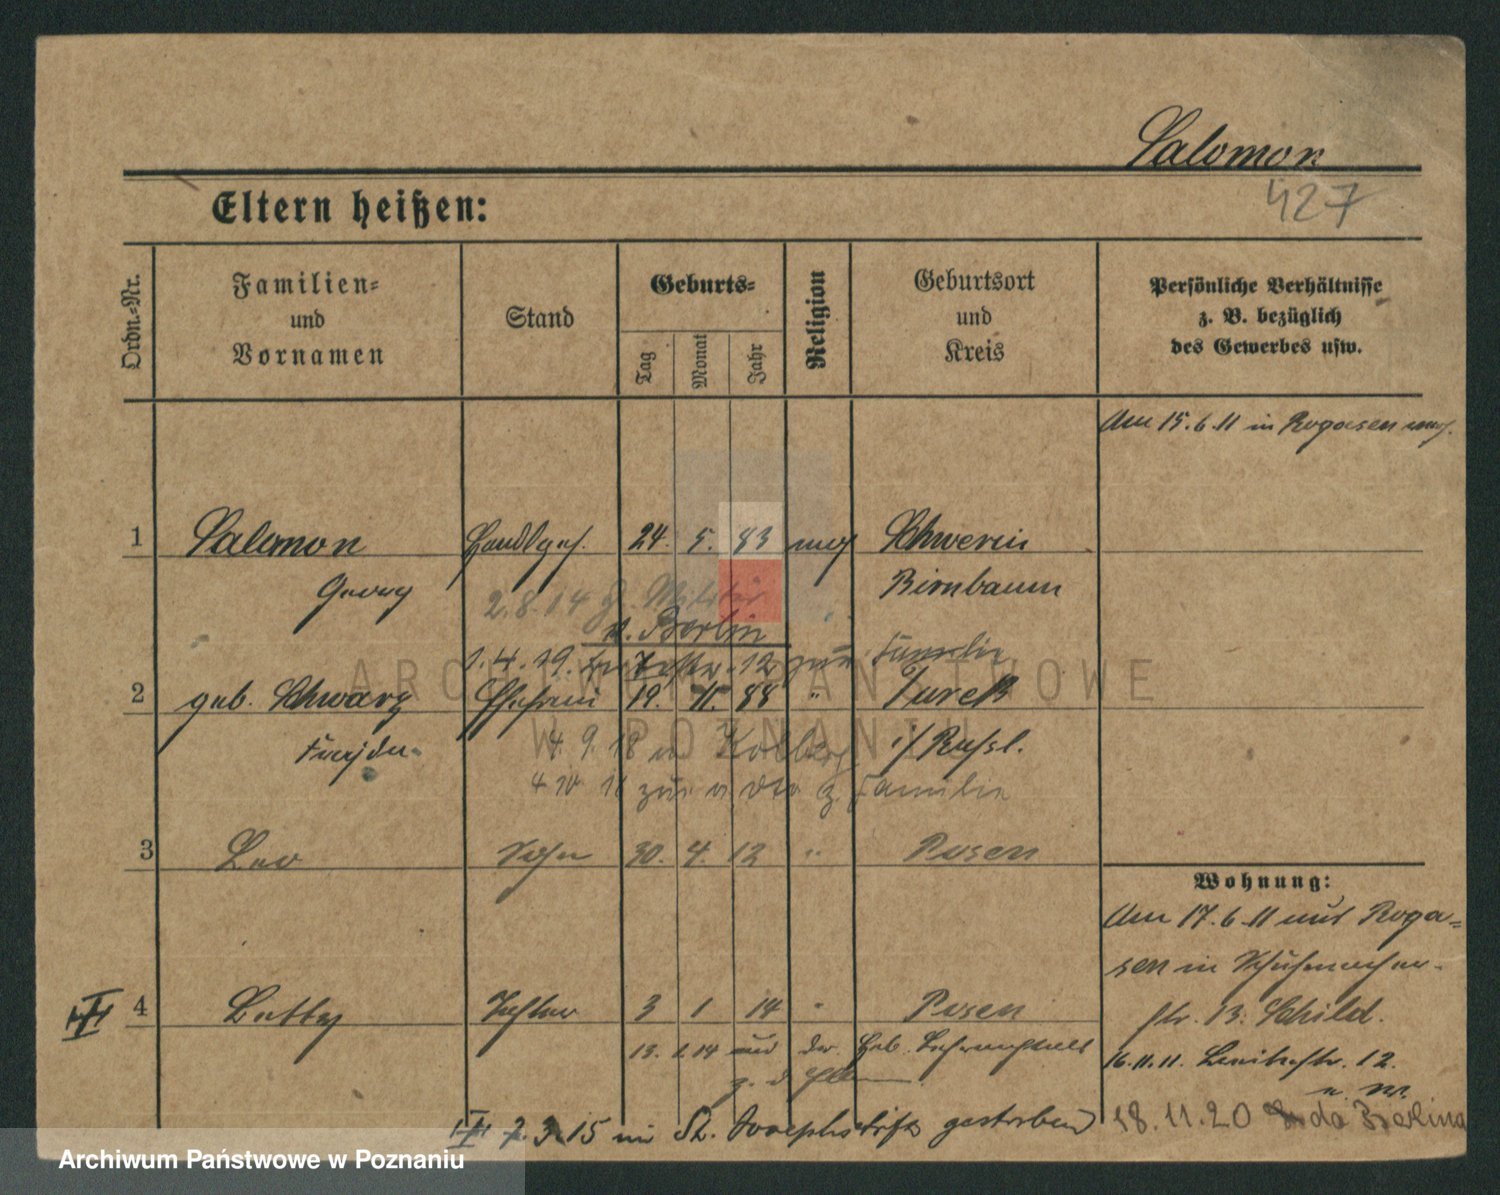 Salomon
427
Eltern heißen:
Ordn.-Nr.
Familien-
und
Vornamen
Stand
Geburts-
Tag
Monat
Jahr
Religion
Geburtsort
und
Kreis
Persönliche Verhältnisse
z. B. bezüglich
des Gewerbes usw.
Am 15.6.11 in Rogasen
1 Salomon 24. 5. 83 Schwerin
Georg Birnbaum
2.8.14 z. Militär
n. Berlin
1.4.19. 12 Familie
2 geb. Schwarz Ehefrau 19. 11. 88 " Turek
4.9.18 n Kolberg i/Russl.
zur Familie
3 Leo Sohn 30. 4. 12 " Posen
Wohnung:
Am 17.6.11 aus Roga=
sen in Schuhmacher-
str. 13. Schild.
4 Betty Tochter 3 1 14 " Posen
13. 1.14 aus der Heb.
16.11.11. 12.
7.3.15 im St. Josephstift gestorben
18.11.20 do Berlina
ARCHIWUM PAŃSTWOWE
W POZNANIU
Archiwum Państwowe w Poznaniu